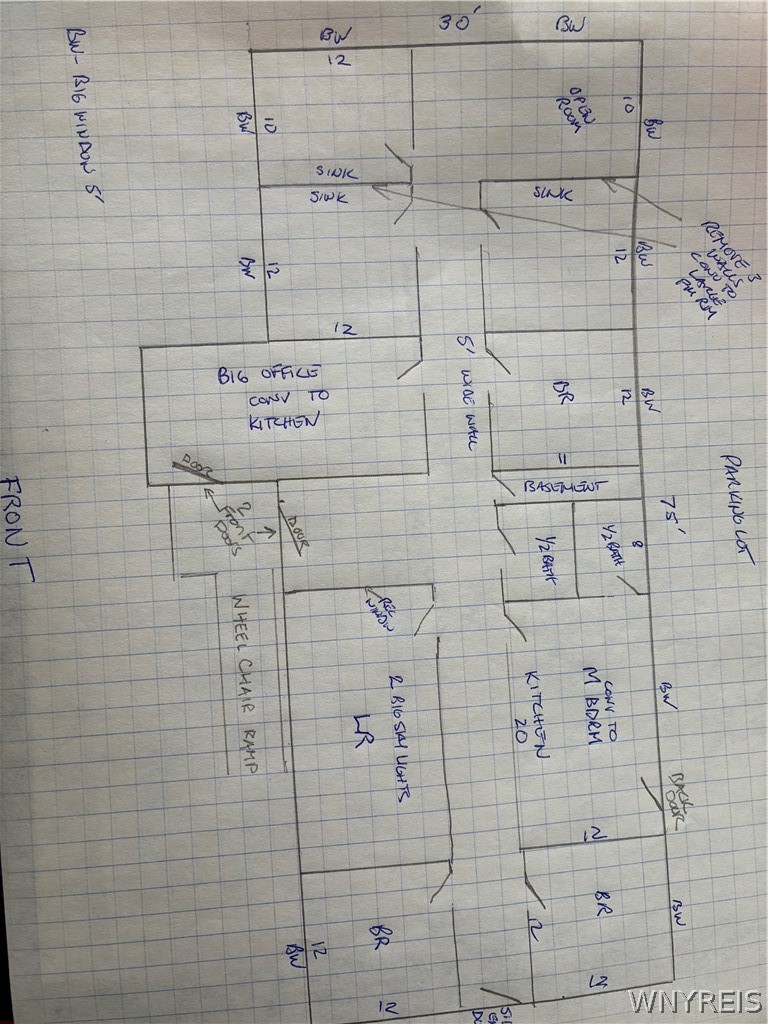 BW
30'
BW
BW- BIG WINDOW 5'
12
BW
10
OPEN
ROOM
10
BW
SINK
SINK
SINK
REMOVE 3
WALLS
CONV TO
LARGE
FAM RM
BW
12
12
BW
12
BIG OFFICE
CONV TO
KITCHEN
5' WIDE HALL
BR
12
BW
11
BASEMENT
DOOR
2
FRONT
DOORS
DOOR
1/2 BATH
1/2 BATH
8
75'
PARKING LOT
FRONT
REC
WINDOW
WHEEL CHAIR RAMP
2 BIG SKYLIGHTS
LR
KITCHEN
20
CONV TO
M BDRM
BW
BACK
DOOR
12
BR
BW
12
BR
12
BW
12
12
WNYREIS